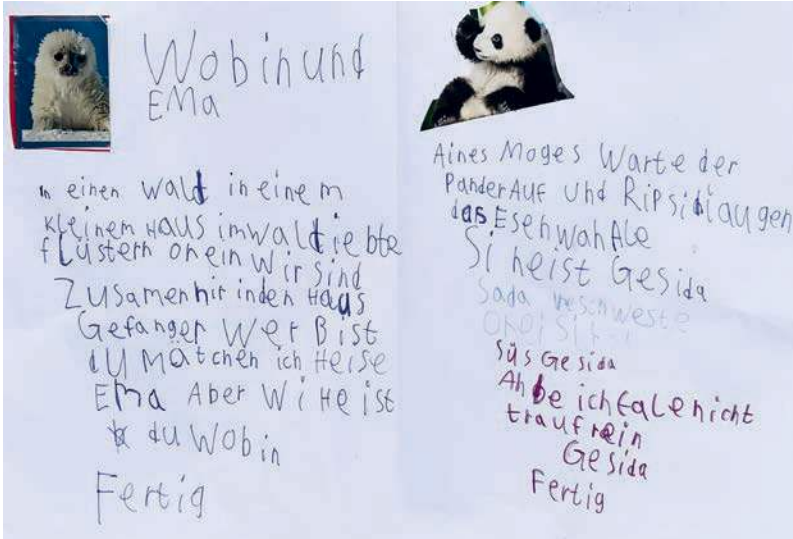 Wobin und
EMa
in einen Wald in einem
kleinem Haus im wald lebte
flüstern onein Wir sind
Zusamen hir in den Haus
Gefanger Wer Bist
du Mätchen ich Heise
EMa Aber Wi Heist
du Wobin
Fertig
Aines Moges Warte der
Pander Auf und Rip si di augen
das Esehwahr Ale
Si heist Gesida
Sada
Süs Gesida
Ah be ich fale nicht
trauf rein
Gesida
Fertig